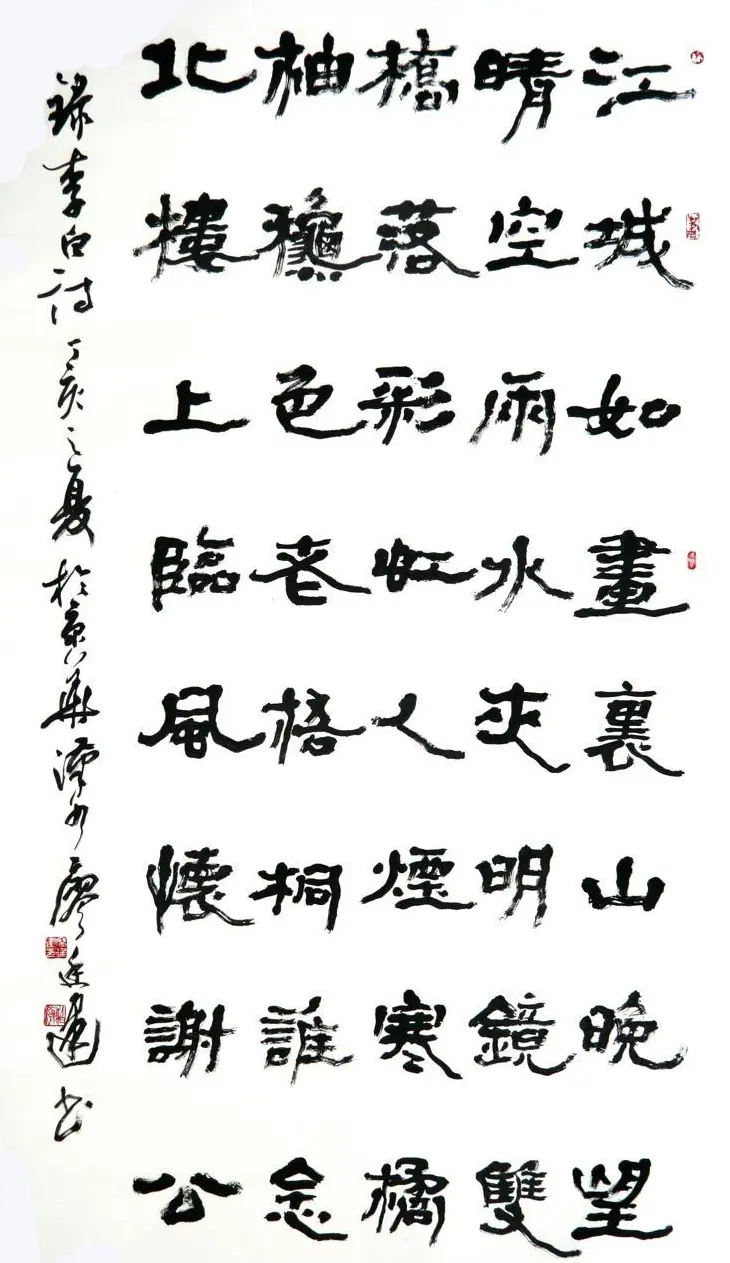 江城如畫裏山晚望
晴空雨水夾明鏡雙
橋落彩虹人煙寒橘
柚龝色老梧桐誰念
北樓上臨風懷謝公
錄李白詩丁亥之夏於京華廖书